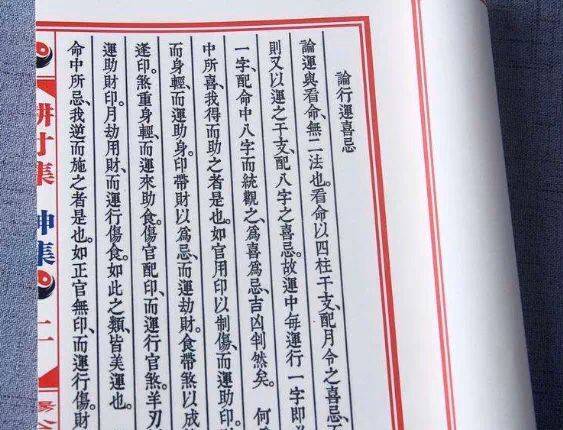 論行運喜忌
論運與看命、無二法也。看命以四柱干支、配月令之喜忌。
則又以運之干支、配八字之喜忌。故運中每運行一字、即
一字、配命中八字而統觀之、為喜為忌、吉凶判然矣。何
中所喜、我得而助之者是也。如官用印以制傷、而運助印。
而身輕、而運助身。印帶財以為忌、而運劫財。食帶煞以成
逢印。煞重身輕、而運來助食。傷官配印、而運行官煞。羊刃
運助財。印月劫用財、而運行傷食。如此之類、皆美運也。
命中所忌、我逆而施之者是也。如正官無印、而運行傷。財
集 神集 二